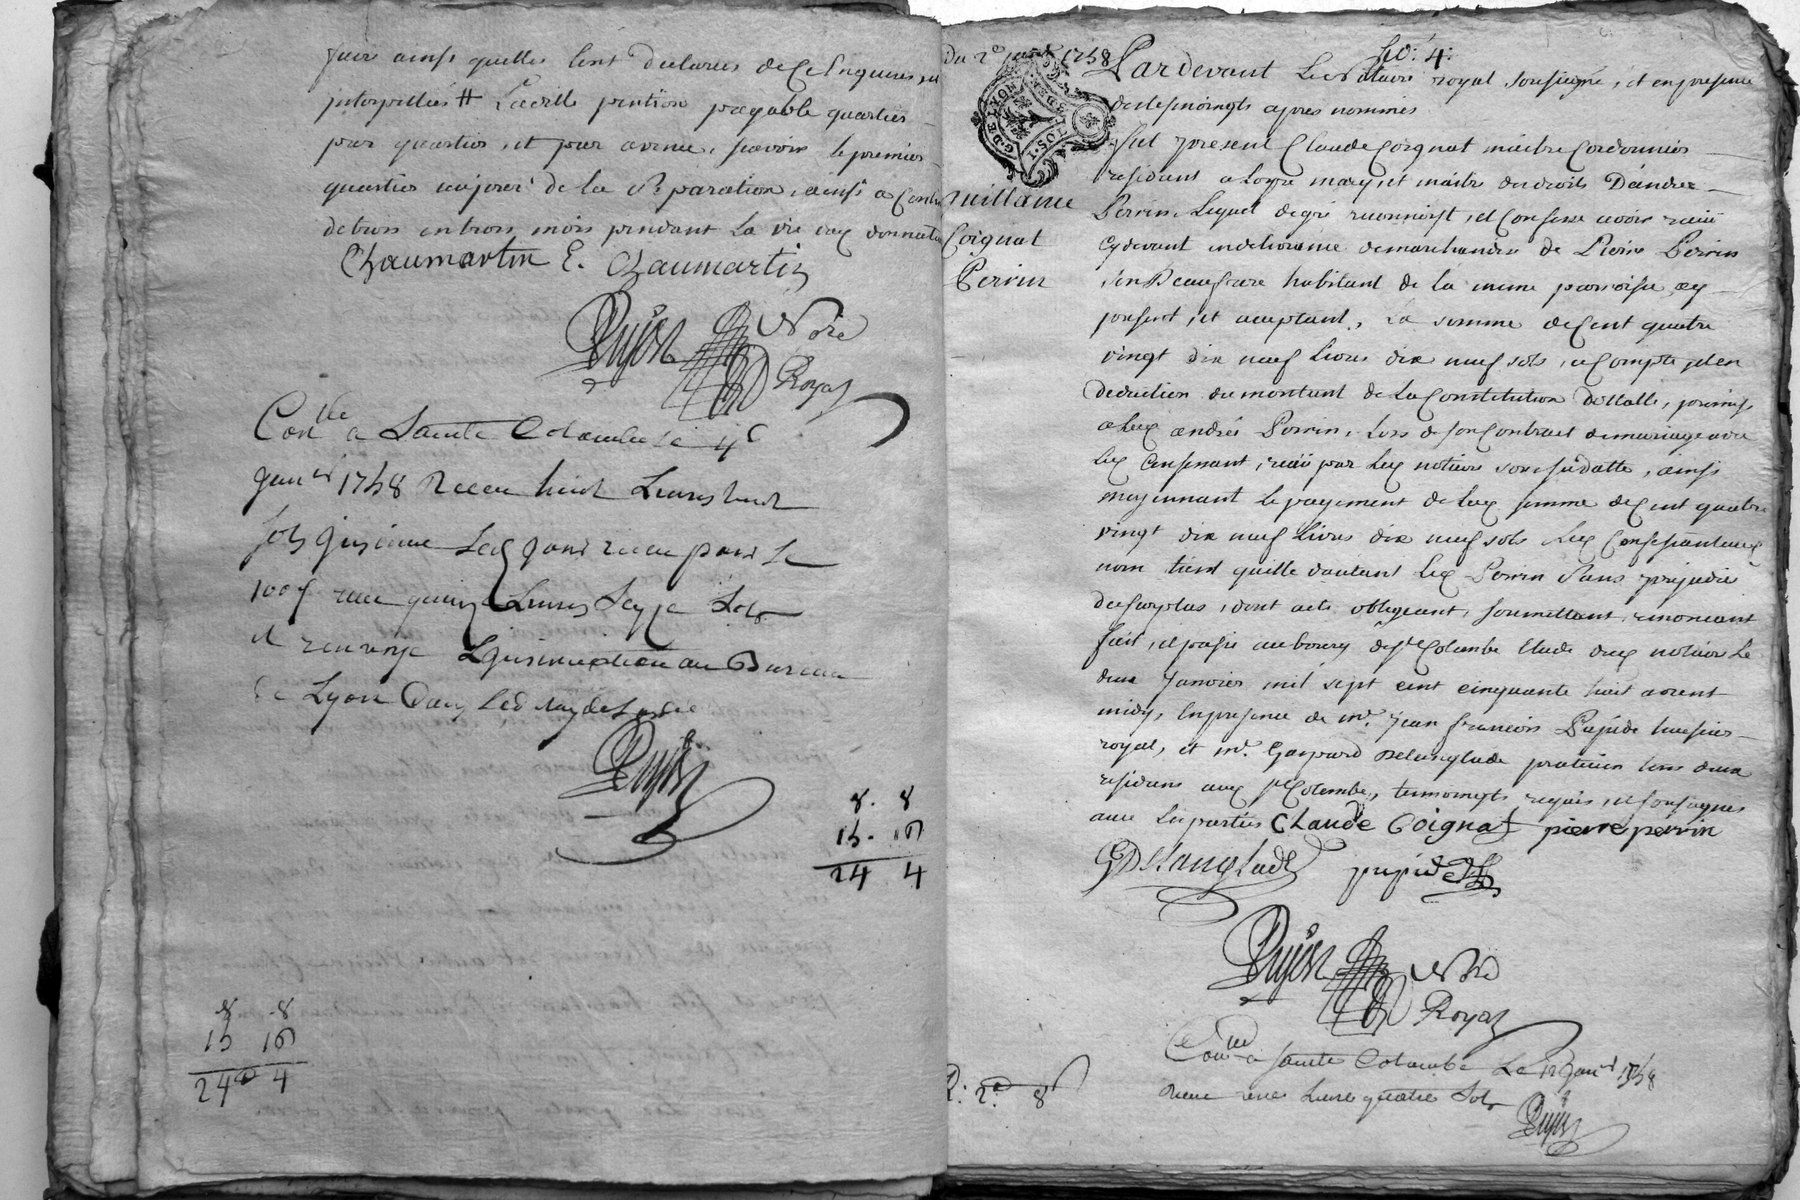 faire ainsi quelles l'ont declarées de ce enquises et
interpellées # Laditte pention payable quartier
par quartier, et par avence, scavoir le premier
quartier aujour de la separation, ainsi a contin
de trois en trois mois pendant la vie dud donnateur
Chaumartin E. Chaumartin
Dujon Nore
Royal
Conlle a Sainte Colombe le
Janer 1758 Receu huit Livres huit
sols
100e receu quinze Livres seize sols
et renvoyé L'insinuation au Bureau
de Lyon dans le delay de
Dujon
8. 8
15. 16
24 4
8 8
15 16
24 4
Du 2e janer 1758
No. 4.
G. DE LYON
Quittance
Coignat
Perrin
Pardevant Le Notaire royal soussigné, et en presence
des tesmoingts apres nommés
fut present Claude Coignat maitre Cordonnier
residant a Loyre mary, et maitre des droits D'andrée
Perrin, Lequel de gré reconnoist, et Confesse avoir receü
cydevant en deniers de marchandise de Pierre Perrin
son Beaufrere habitant de la meme parroisse, cy
present, et aceptant, La somme de Cent quatre
vingt dix neuf livres dix neuf sols, a Compte et en
deduction du montant de La Constitution dottalle, promise
a lad andrée Perrin, lors de son Contract de mariage avec
led Confessant, receü par led notaire sous sa datte, ainsi
moyennant le payement de lad somme de Cent quatre
vingt dix neuf livres dix neuf sols led Confessant aud
nom tient quitte d'autant led Perrin Sans prejudice
du surplus, dont acte obligeant, soumettant, renonceant
fait, et passé au bourg de Ste Colombe Etude dud notaire Le
deux Janvier mil sept cent cinquante huit avent
midy, En presence de mr. Jean francois Pupide huissier
royal, et mr. Gaspard Delanglade praticien tous deux
residans aud Ste Colombe, temoingts requis, et soussignes
avec les parties Claude Coignat pierre perrin
GDelanglade pupide
Dujon Nore
Royal
Conlle a Sainte Colombe Le 12 Janer 1758
receu Livre quatre Sols
Dujon
R. 2. 8